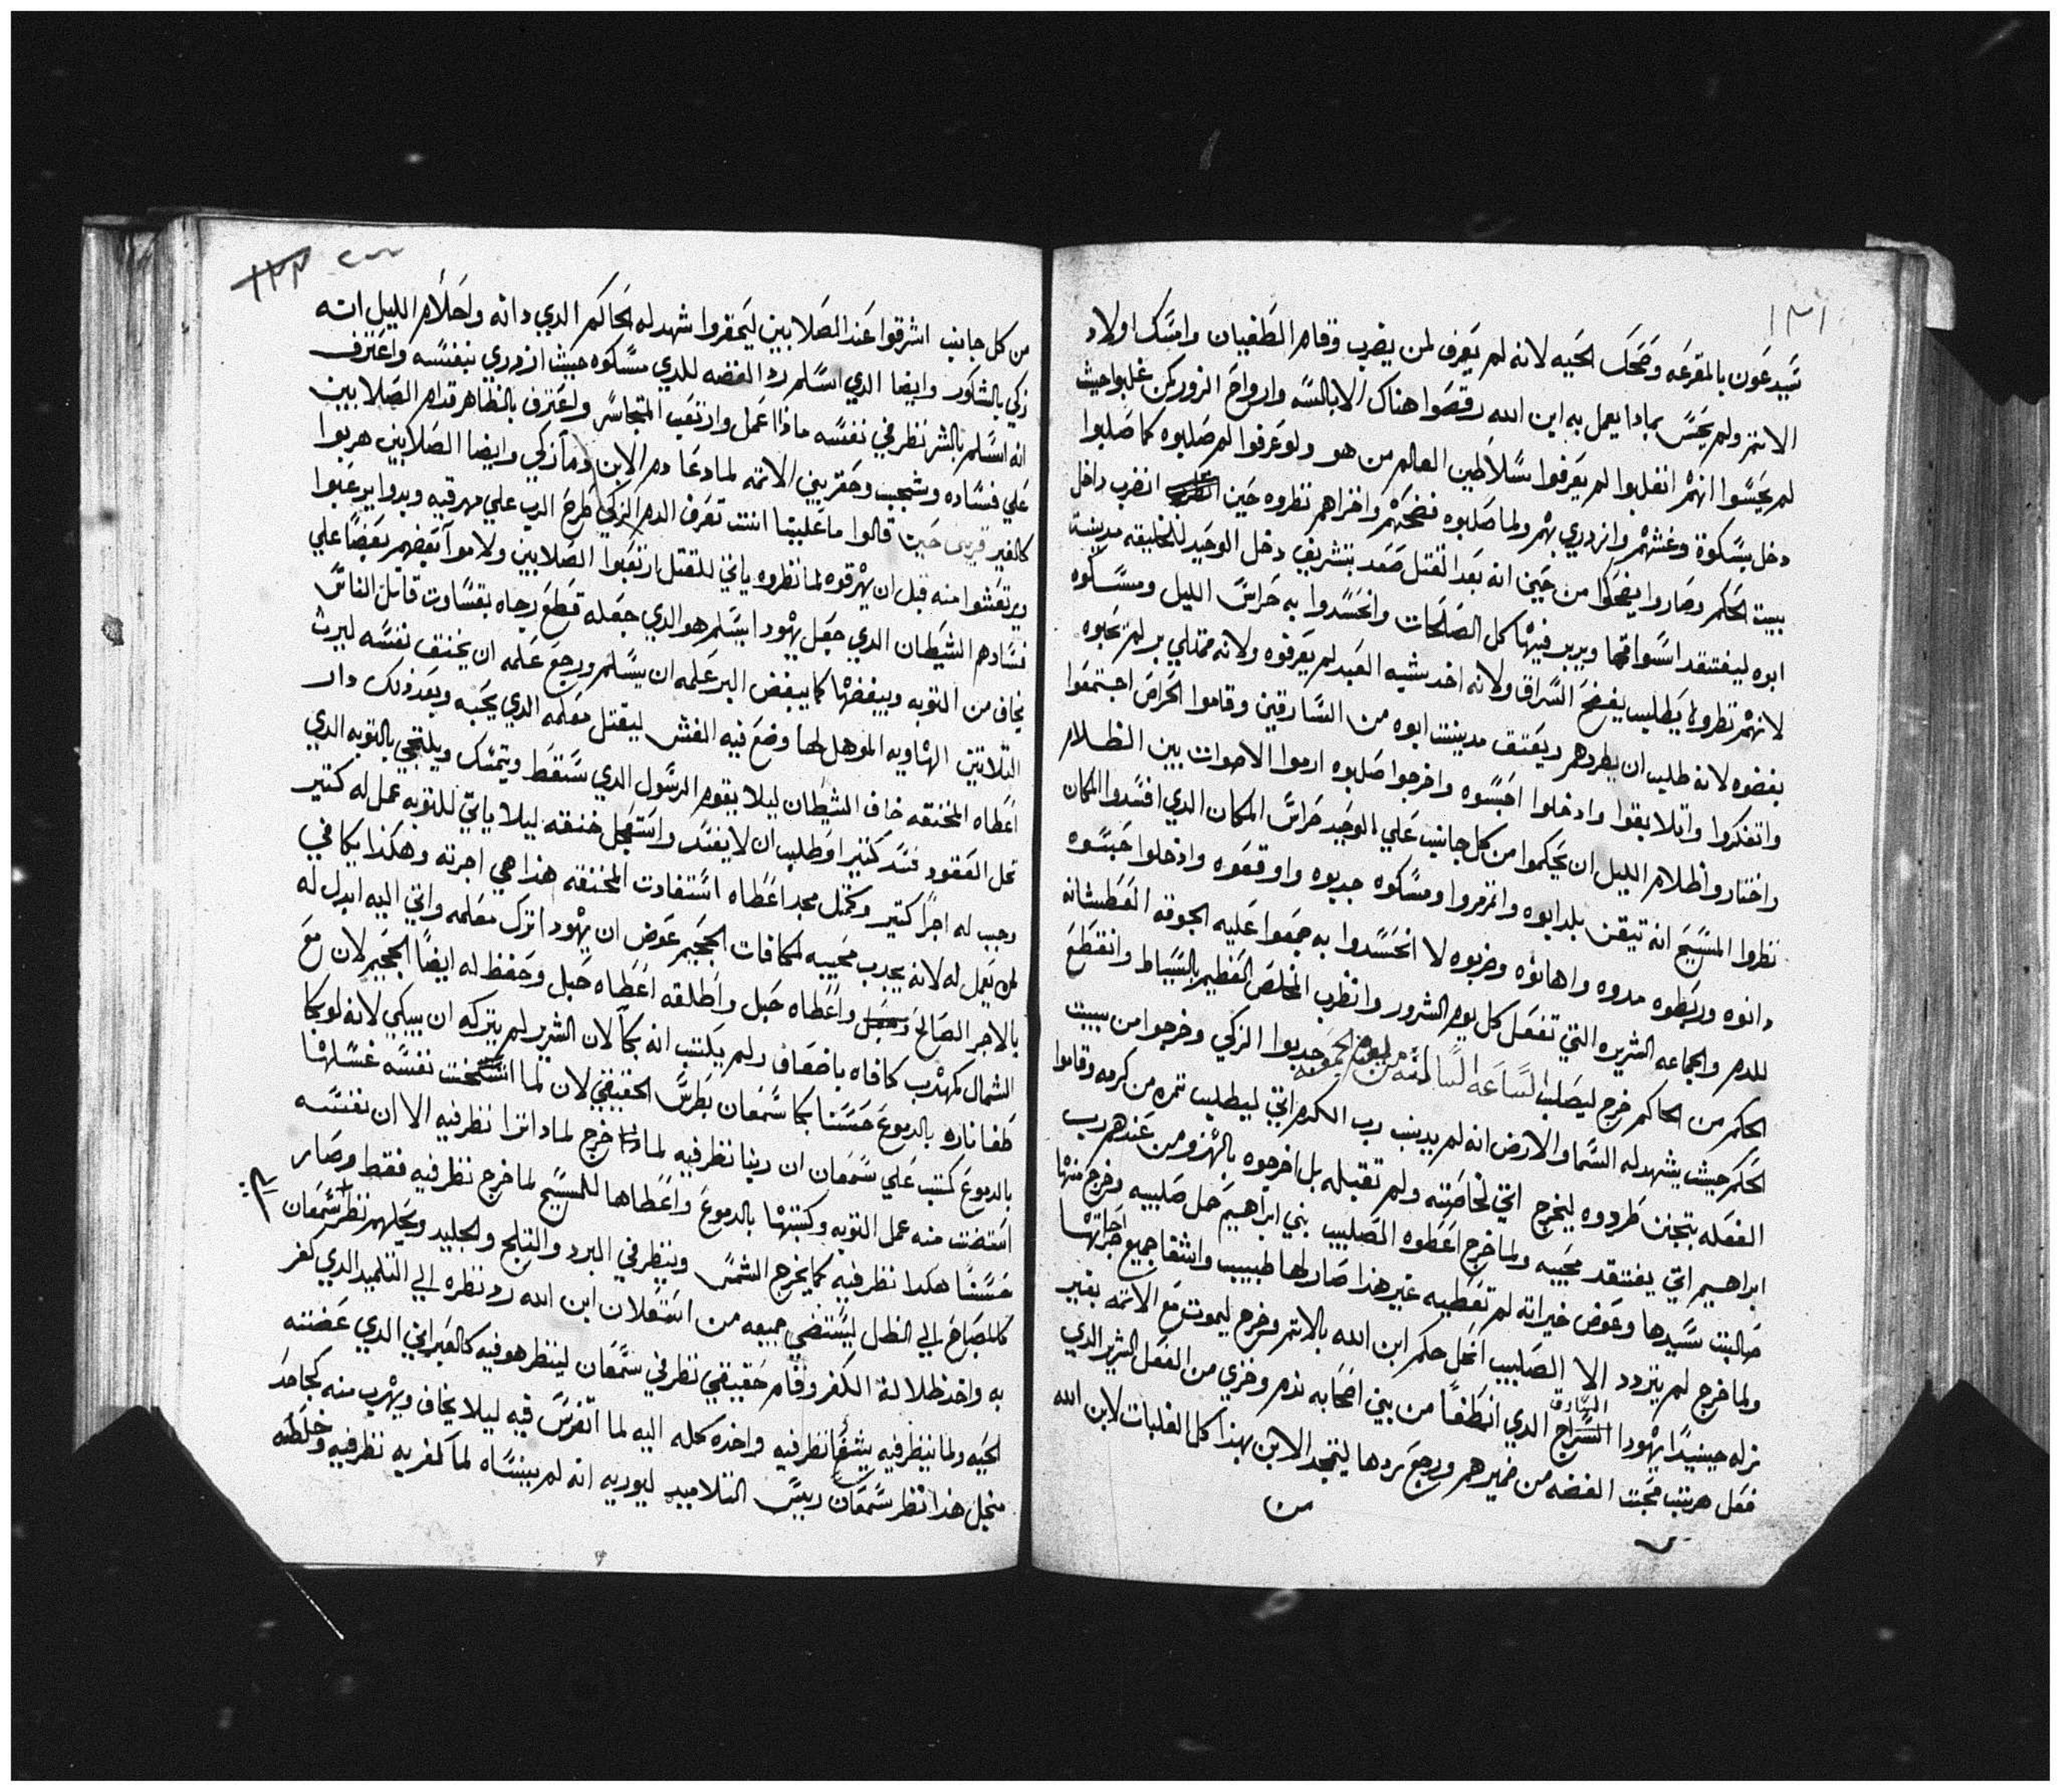 ١٣١
تبيدعون بالمقرعه وضحك الحيه لانه لم يعرف لمن يضرب وقام الطغيان وامسك اولاد
الاتم ولم يحس بمادا يعمل به ابن الله رقصوا هناك الابالسه وارواح الزور كمن غلبوا حيث
لم يحسوا انهم انغلبوا لم يعرفوا سلاطين العالم من هو ولو عرفوا لم صلبوه كما صلبوا
دخل بسكوة وغشهم وازدري بهم ولما صلبوه فضحهم واخزاهم نظروه حين انضرب داخل
بيت الحكم وصاروا يضحكوا من حين انه بعد القتل صعد بتشريف دخل الوحيد للخليقه مدينة
ابوه ليفتقد اسوارها ويربر فيها كل الصلحات وانحسدوا به حراس الليل ومسكوه
لانهم نظروه يطلب يفضح السراق ولانه اخد شبه العبد لم يعرفوه ولانه ممتلي بر لم تحبوه
بغضوه لانه طلب ان يطردهم ويعتق مدينت ابوه من السارقين وقاموا الحراص اجتمعوا
واتفكروا وايلا يبقوا وادخلوا احبسوه واخرجوا صلبوه ارموا الاصوات بين الظلام
واختاروا ظلام الليل ان يحكموا من كل جانب علي الوحيد حراس المكان الدي افسدوا المكان
نظروا المسيح انه تيقن بلد ابوه واتمرمروا ومسكوه جدبوه واوقعوه وادخلوا حبسوه
دانوه وربطوه مدوه واهانوه وضربوه لا انحسدوا به جمعوا عليه الجوقه العطشانه
للدم والجماعه الشريره التي تفعل كل يوم الشرور وانظرب المخلص العظيم بالسياط وانقطع
الحكم من الحاكم خرج ليصلب الساعه التالته من يوم الجمعه جدبوا الزكي وخرجوا من بيت
الحكم حيث يشهد له السما والارض انه لم يدينب رب الكرم اتي ليطلب تمره من كرمه وقاموا
الفعله بتجنن طردوه ليخرج اتي لخاصته ولم تقبله بل اخرجوه بالهزو من عندهم رب
ابراهيم اتي يفتقد محبيه ولما خرج اعطوه الصليب بني ابراهيم حمل صليبه وخرج منها
صالبت سيدها وعوض خيراته لم تعطيه غير هذا صار لها طبيب واشفا جميع جراحاتها
ولما خرج لم يتزود الا الصليب انحل حكم ابن الله بالاتم وخرج ليموت مع الاتمه بغير
زله حينيدًا يهودا السراج السارق الدي انطفأ من بين اصحابه ندم وخزي من الفعل الشرير الدي
فعل هربت محبت الفضه من ضميرهم ورجع ردها ليتمجد الابن بهذا كل الغلبات لابن الله
من
١٣٢
من كل جانب اشرقوا عند الصلابين ليحقروا شهد له الحاكم الدي دانه واحلام الليل انه
زكي بالشكور وايضا الدي اسلم رد الفضه للدي مسكوه حيث ازدري بنفسه واعترف
انه اسلم بالشر نظر في نفسه ماذا عمل وارتعب المتجاسر واعترف بالظاهر قدام الصلابين
علي فساده وشجب وحقر بني الاتمه لما دعا دم الابن دمآ زكي وايضا الصلابين هربوا
كالغير قريبى حين قالوا ما علينا انت تعرف الدم الزكي طرح الرب علي مهرقيه وبدوا يرعبوا
ويرتعشوا منه قبل ان يهرقوه لما نظروه ياتي للقتل ارتعبوا الصلابين ولاموا بعضهم بعضًا علي
فسادهم الشيطان الدي جعل يهودا يسلم هو الدي جعله قطع رجاه بقساوت قاتل الناس
يخاف من التوبه ويبغضها كما يبغض البر علمه ان يسلم ورجع علمه ان يخنق نفسه ليرث
التلاتين الهاويه الموهل لها وضع فيه الغش ليقتل معلمه الدي يحبه وبعد ذلك دار
اعطاه المخنقه خاف الشيطان ليلا يقوم الرسول الدي سقط ويتمسك ويلتجي بالتوبه الدي
تحل العقود فسد كتير اوطلب ان لا يفسد واستعجل خنقه ليلا ياتي للتوبه عمل له كتير
وجب له اجرًا كتير وكمتل مجد اعطاه استفادت المخنقه هذا هي اجرته وهكذا يكافي
لمن يعمل له لانه يجدب محبيه لمكافات الجحيم عوض ان يهودا ترك معلمه واتي اليه ابدل له
بالاجر الصالح واعطاه حبل واطلقه اعطاه حبل وحفظ له ايضًا الجحيم لان مع
الشمال كمهدب كافاه باضعاف ولم يكتب انه بكا لان الشرير لم يتركه ان يبكي لانه لو بكا
طفا ناره بالدموع حسنا بكا سمعان بطرس الحقيقي لان لما اتسخت نفسه غسلها
بالدموع كتب علي سمعان ان ربنا نظر فيه لما خرج لماد اترا نظر فيه الا ان نفسه
استضت منه عمل التوبه وكبتها بالدموع واعطاها للمسيح لما خرج نظر فيه فقط وصار
حسنًا هكدا نظر فيه كما يخرج الشمس وينظر في البرد والتلج والجليد ويحلهم نظر سمعان
كالمصباح الي الظل ليستضي جميعه من استعلان ابن الله رد نظره الي التلميد الدي كفر
به واخد ظلالة الكفر وقام حقيقي نظر في سمعان لينظر هو فيه كالعبراني الدي عضته
الحيه ولما ينظر فيه يشفا نظر فيه واخده كله اليه لما اتفرس فيه ليلا يخاف ويهرب منه كجاحد
منجل هذا نظر سمعان رييس التلاميد ليوريه انه لم ينساه لما كفر به نظر فيه وخلطه